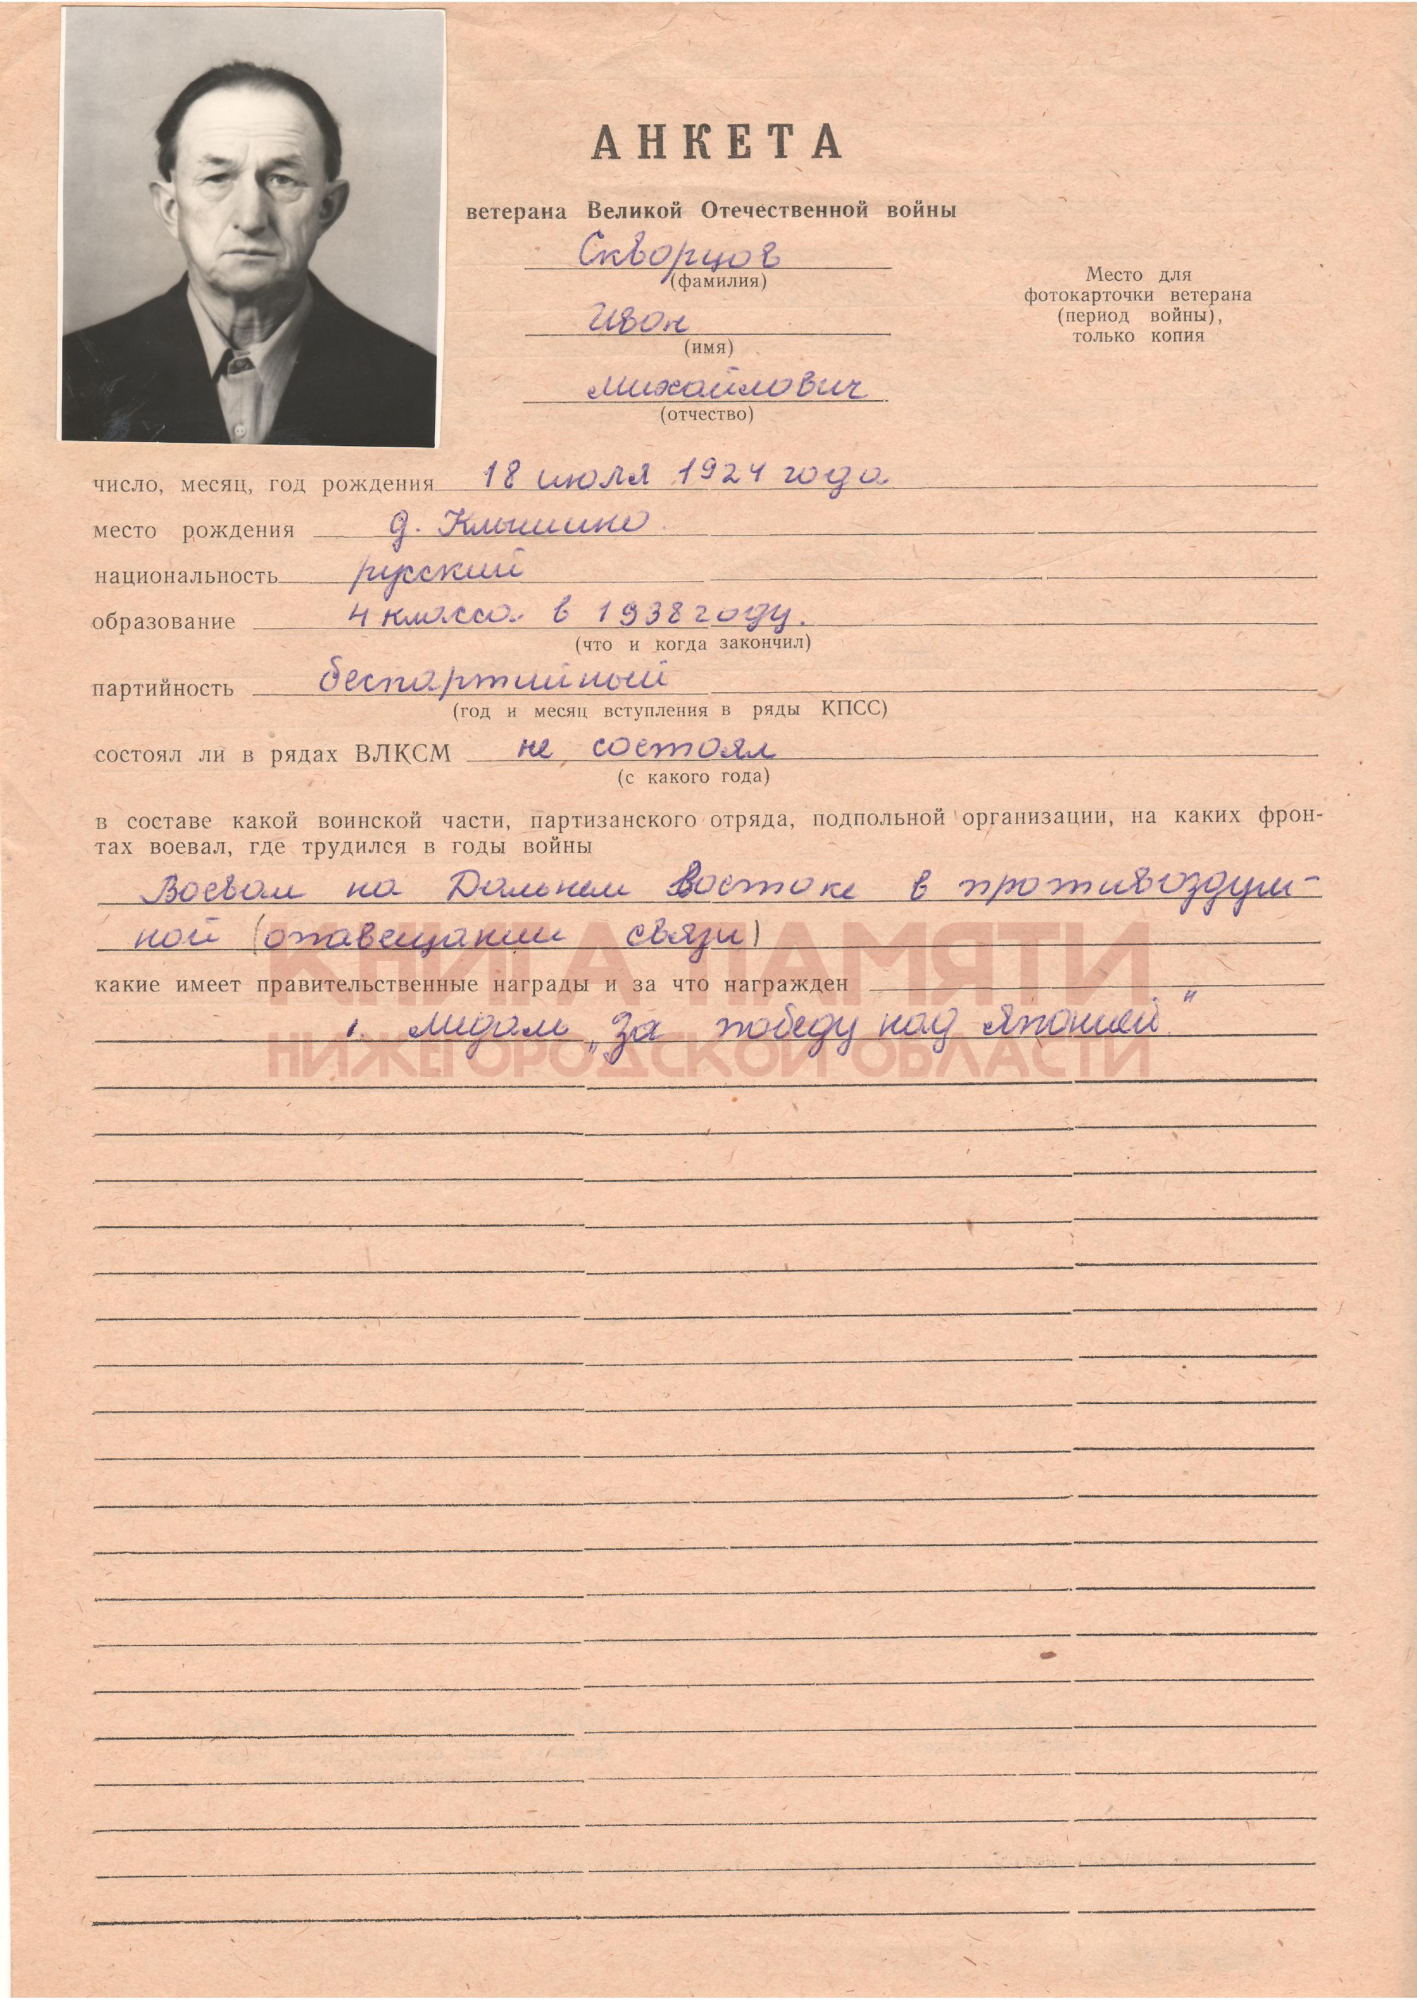 АНКЕТА
ветерана Великой Отечественной войны
Скворцов
(фамилия)
Иван
(имя)
Михайлович
(отчество)
Место для
фотокарточки ветерана
(период войны),
только копия
число, месяц, год рождения 18 июля 1924 года
место рождения д. Клышино
национальность русский
образование 4 класса в 1938 году.
(что и когда закончил)
партийность беспартийный
(год и месяц вступления в ряды КПСС)
состоял ли в рядах ВЛКСМ не состоял
(с какого года)
в составе какой воинской части, партизанского отряда, подпольной организации, на каких фрон-
тах воевал, где трудился в годы войны
Воевал на Дальнем Востоке в противоздуш-
ной (опавещании связи)
КНИГА ПАМЯТИ
какие имеет правительственные награды и за что награжден
1. Медаль „За победу над Японией."
НИЖЕГОРОДСКОЙ ОБЛАСТИ